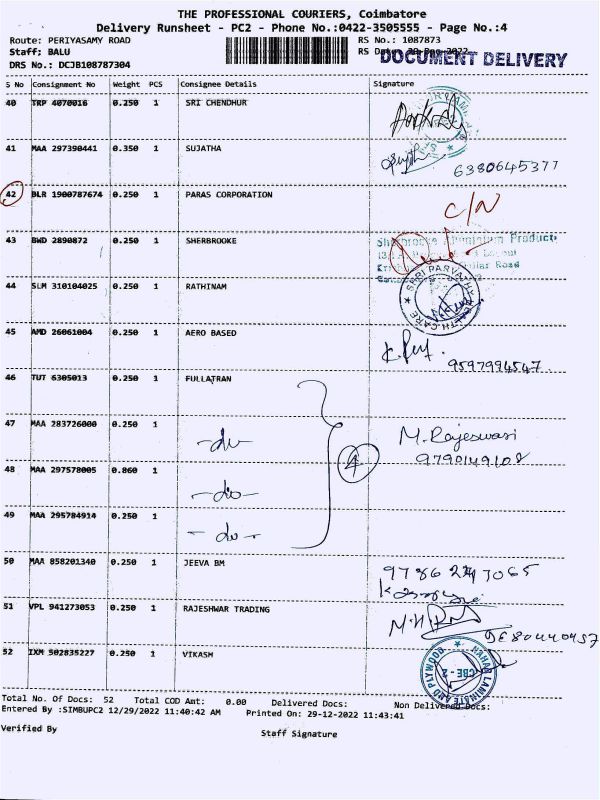 THE PROFESSIONAL COURIERS, Coimbatore
Delivery Runsheet - PC2 - Phone No.:0422-3505555 - Page No.:4
Route: PERIYASAMY ROAD RS No.: 1087873
Staff; BALU RS
DOCUMENT DELIVERY
DRS No.: DCJB108787304
S No Consignment No Weight PCS Consignee Details Signature
40 TRP 4070016 0.250 1 SRI CHENDHUR
41 MAA 297390441 0.350 1 SUJATHA
6380645377
42 BLR 1900787674 0.250 1 PARAS CORPORATION
C/N
43 BWD 2890872 0.250 1 SHERBROOKE
Sherbrooke Aluminium Products
44 SLM 310104025 0.250 1 RATHINAM
SHRI PARVATHY HEALTH CARE
45 AMD 26061004 0.250 1 AERO BASED
9597994547
46 TUT 6305013 0.250 1 FULLATRAN
47 MAA 283726000 0.250 1 -do- M. Rajeswari
9790149108
4
48 MAA 297578005 0.860 1 -do-
49 MAA 295784914 0.250 1 -do-
50 MAA 858201340 0.250 1 JEEVA BM
51 VPL 941273053 0.250 1 RAJESHWAR TRADING
52 IXM 502835227 0.250 1 VIKASH
CBE - 2
Total No. Of Docs: 52 Total COD Amt: 0.00 Delivered Docs: Non Delivered Docs:
Entered By :SIMBUPC2 12/29/2022 11:40:42 AM Printed On: 29-12-2022 11:43:41
Verified By Staff Signature